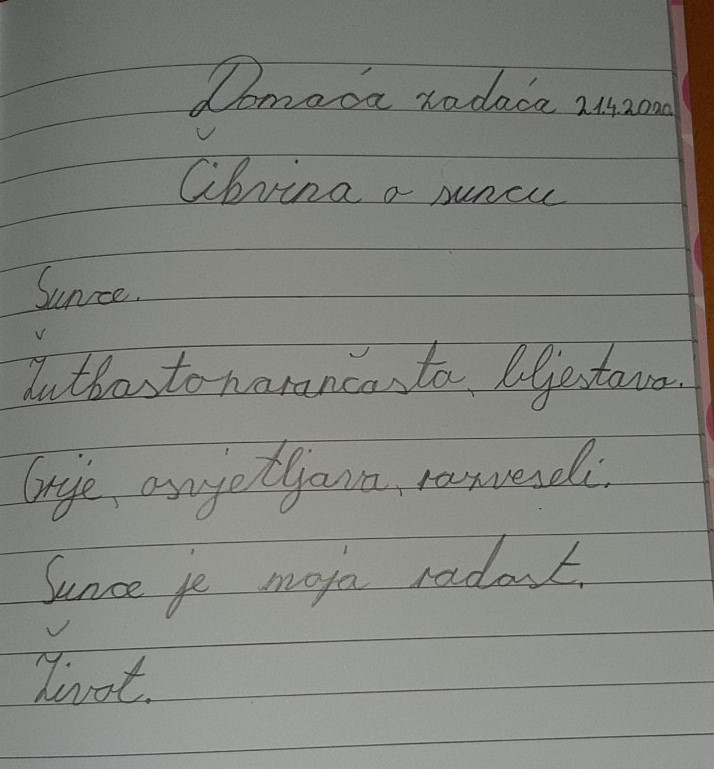 Domaća zadaća 21.4.2020.
Čikvina o suncu
Sunce.
Žutkastonarančasta, bljestava.
Grije, osvjetljava, razveseli.
Sunce je moja radost.
Život.